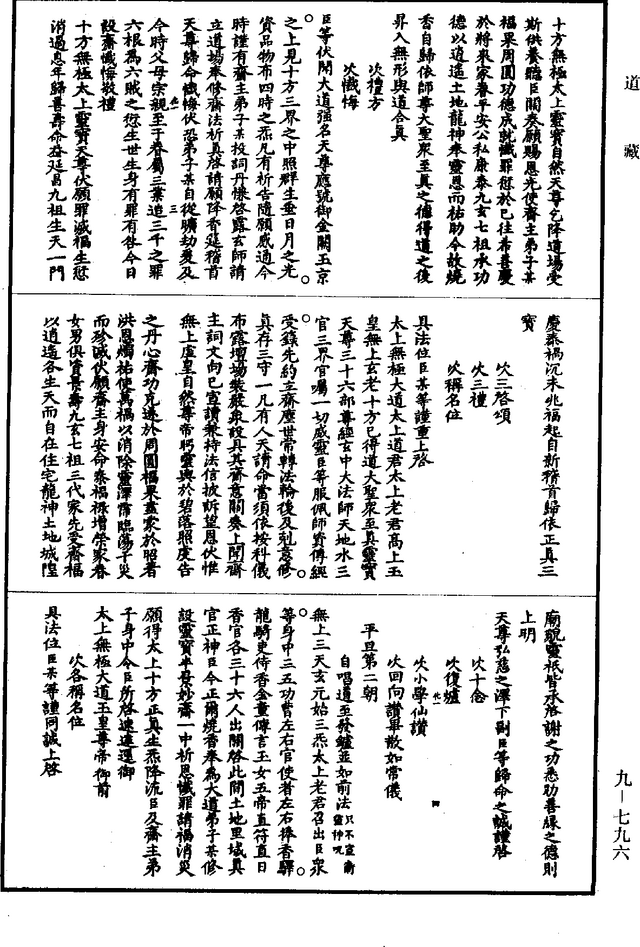 道藏
十方無極太上靈寶自然天尊乞降道場受
斯供養聽臣關奏願賜恩光使齋主弟子某
福果周圓功德成就懺罪愆於已往希善慶
於將來家眷平安公私康泰九玄七祖承功
德以逍遙土地龍神奉靈恩而祐助今故燒
香自歸依師尊大聖衆至真之德得道之後
昇入無形與道合真
次禮方
次懺悔
臣等伏聞大道強名天尊應號御金闕玉京
之上見十方三界之中照群生垂日月之光
資品物布四時之炁凡有祈告隨願感通今
時謹有齋主弟子某投詞丹悃啓露玄師請
立道場奉修齋法祈真啓請願降香筵稽首
天尊歸命懺悔伏恐弟子某自從曠劫爰及
今時父母宗親至于眷屬三業造三千之罪
六根爲六賊之愆生世生身有罪有咎今日
設齋懺悔敬禮
十方無極太上靈寶天尊伏願罪滅福生愆
消過息年歸善壽命益延長九祖生天一門
慶泰禍沉未兆福起自新稽首歸依正真三
寶
次三啓頌
次三禮
次稱名位
具法位臣某等謹重上啓
太上無極大道太上道君太上老君高上玉
皇無上玄老十方已得道大聖衆至真靈寶
天尊三十六部尊經玄中大法師天地水三
官三界官屬一切威靈臣等服佩師資傳經
受籙先約立齋歷世常轉法輪後及刻意修
真存三守一凡有人天請命當須依按科儀
布露壇場裝嚴衆設具其齋意關奏上聞齋
主詞文向已宣讀兼持法信披訴望恩伏惟
無上虛皇自然尊帝眄靈輿於碧落照虔告
之丹心齋功克遂於周圓福果蓋家於照著
洪恩燭祐使萬禍以消除靈澤霈臨蕩千災
而殄滅伏願齋主身安命泰福祿增榮家眷
女男俱資長壽九玄七祖三代家先受齋福
以逍遙各生天而自在住宅龍神土地城隍
廟貌靈祇皆承啓謝之功悉助善緣之德則
上明
天尊弘慈之澤下副臣等歸命之誠謹啓
次十念
次復爐
次小學仙讚
次回向讚畢散如常儀
平旦第二朝
自唱道至發爐並如前法只不宣衛靈神呪
無上三天玄元始三炁太上老君召出臣衆
等身中三五功曹左右官使者左右捧香驛
龍騎吏侍香金童傳言玉女五帝直符直日
香官各三十六人出關啓此間土地里域真
官正神臣今正爾燒香奉爲大道弟子某修
設靈寶半景妙齋一中祈恩懺罪請福消災
願得太上十方正真生炁降流臣及齋主弟
子身中令臣所啓速達逕御
太上無極大道玉皇尊帝御前
次各稱名位
具法位臣某等謹同誠上啓
九—七九六